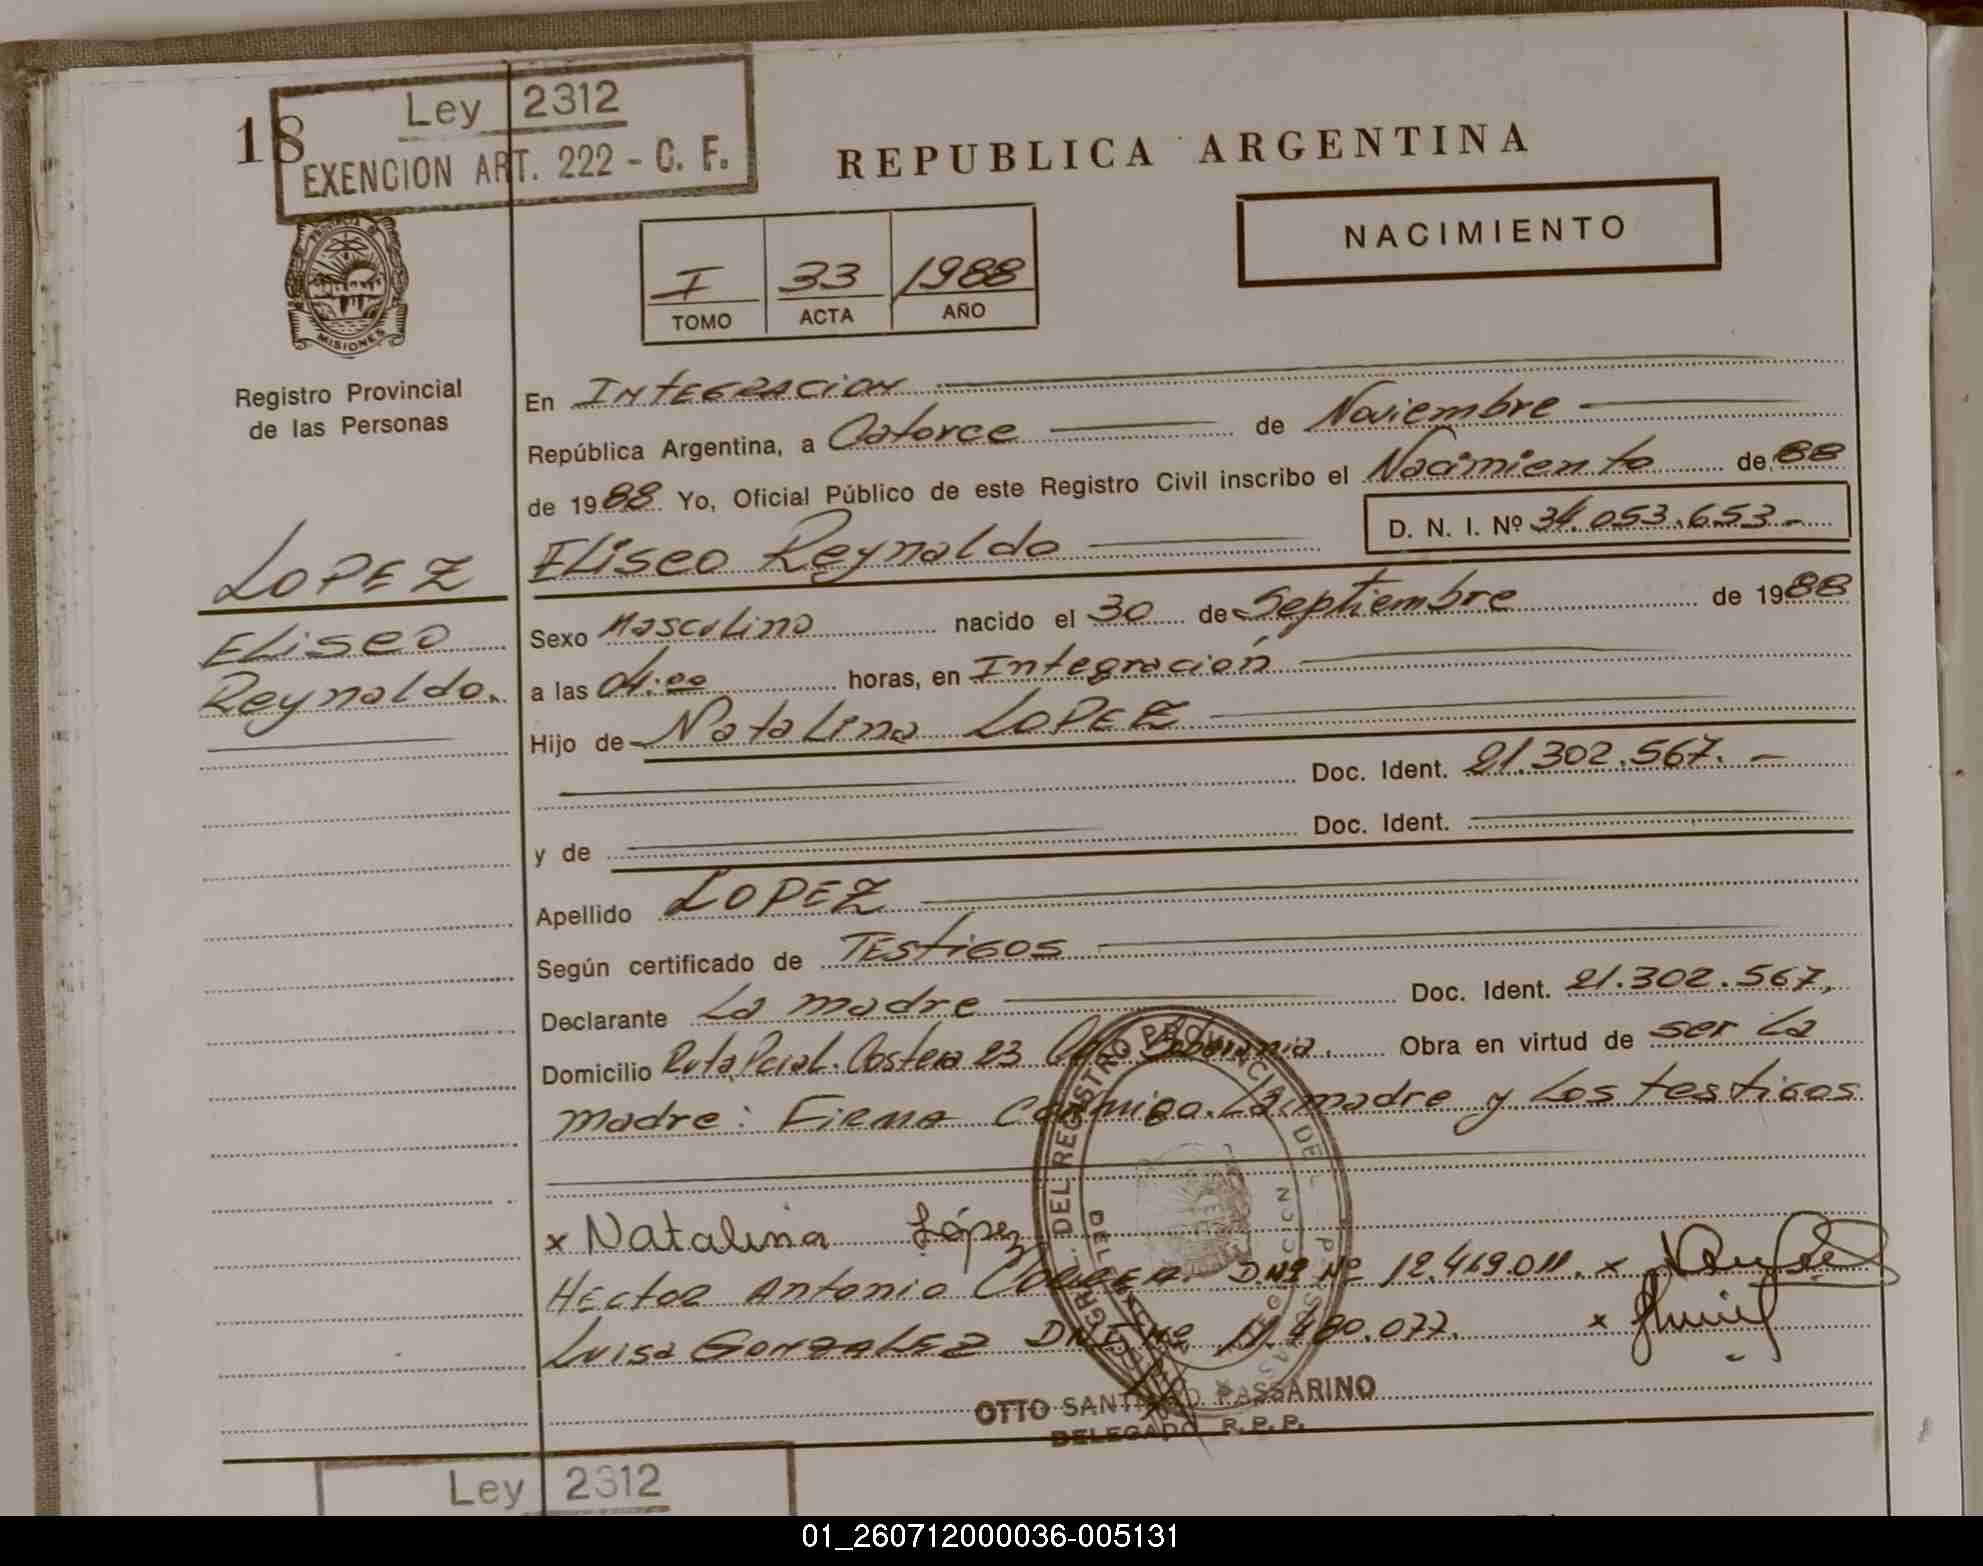 18
Ley 2312
EXENCION ART. 222 - C. F.
REPUBLICA ARGENTINA
NACIMIENTO
I 33 1988
TOMO ACTA AÑO
MISIONES
Registro Provincial
de las Personas
LOPEZ
Eliseo
Reynaldo.
En INTEGRACION
República Argentina, a Catorce de Noviembre
de 1988 Yo, Oficial Público de este Registro Civil inscribo el Nacimiento de 88
D. N. I. Nº 34.053.653.-
Eliseo Reynaldo
Sexo Masculino nacido el 30 de Septiembre de 1988
a las 04:00 horas, en Integración
Hijo de Natalina LOPEZ
Doc. Ident. 21.302.567. -
y de Doc. Ident.
Apellido LOPEZ
Según certificado de Testigos
Declarante La madre Doc. Ident. 21.302.567,
Domicilio Ruta Pcial. Costera 23 Obra en virtud de ser la
madre: Firma Conmigo. La madre y los testigos
x Natalina López
Hector Antonio DNI Nº 12.419.011. x
Luisa GONZALEZ DNI Nº 11.480.077. x
DEL REGISTRO PROVINCIAL DE
OTTO SANTIAGO PASSARINO
DELEGADO R.P.P.
Ley 2312
01_260712000036-005131